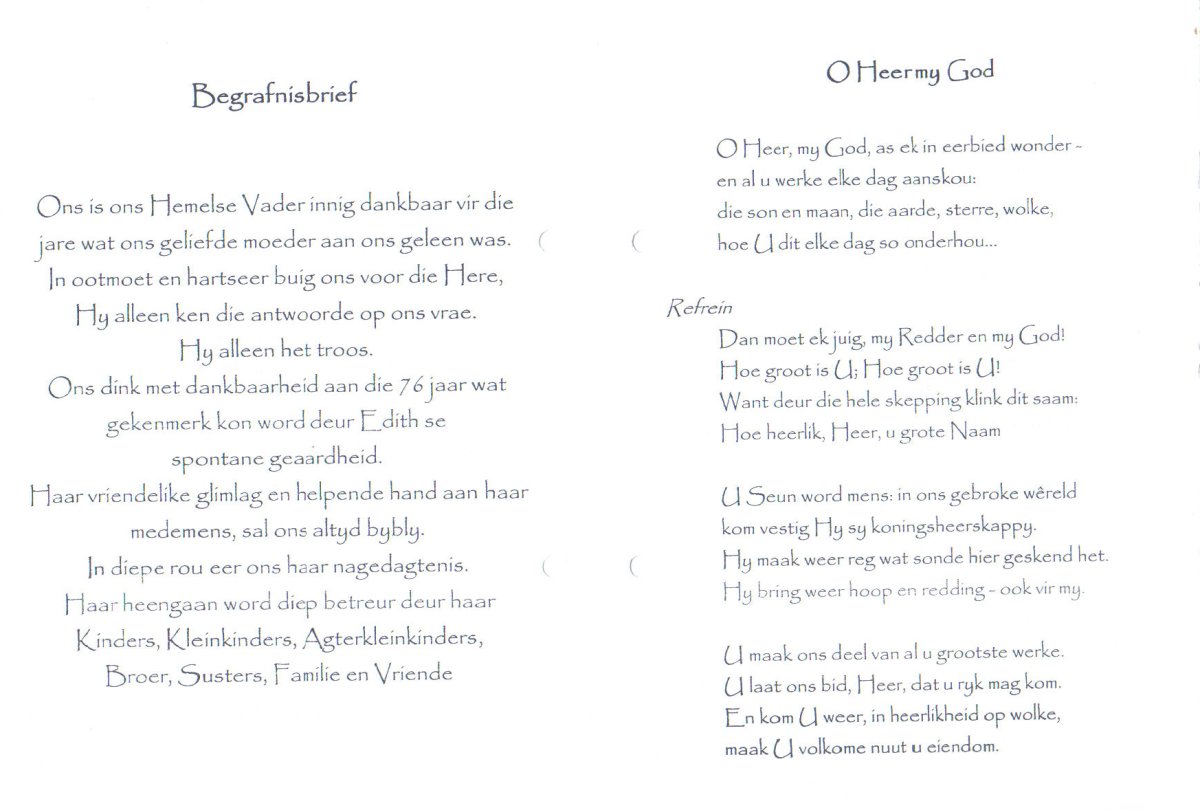 Begrafnisbrief
Ons is ons Hemelse Vader innig dankbaar vir die
jare wat ons geliefde moeder aan ons geleen was.
In ootmoet en hartseer buig ons voor die Here,
Hy alleen ken die antwoorde op ons vrae.
Hy alleen het troos.
Ons dink met dankbaarheid aan die 76 jaar wat
gekenmerk kon word deur Edith se
spontane geaardheid.
Haar vriendelike glimlag en helpende hand aan haar
medemens, sal ons altyd bybly.
In diepe rou eer ons haar nagedagtenis.
Haar heengaan word diep betreur deur haar
Kinders, Kleinkinders, Agterkleinkinders,
Broer, Susters, Familie en Vriende
O Heer my God
O Heer, my God, as ek in eerbied wonder -
en al u werke elke dag aanskou:
die son en maan, die aarde, sterre, wolke,
hoe U dit elke dag so onderhou...
Refrein
Dan moet ek juig, my Redder en my God!
Hoe groot is U; Hoe groot is U!
Want deur die hele skepping klink dit saam:
Hoe heerlik, Heer, u grote Naam
U Seun word mens: in ons gebroke wêreld
kom vestig Hy sy koningsheerskappy.
Hy maak weer reg wat sonde hier geskend het.
Hy bring weer hoop en redding - ook vir my.
U maak ons deel van al u grootste werke.
U laat ons bid, Heer, dat u ryk mag kom.
En kom U weer, in heerlikheid op wolke,
maak U volkome nuut u eiendom.